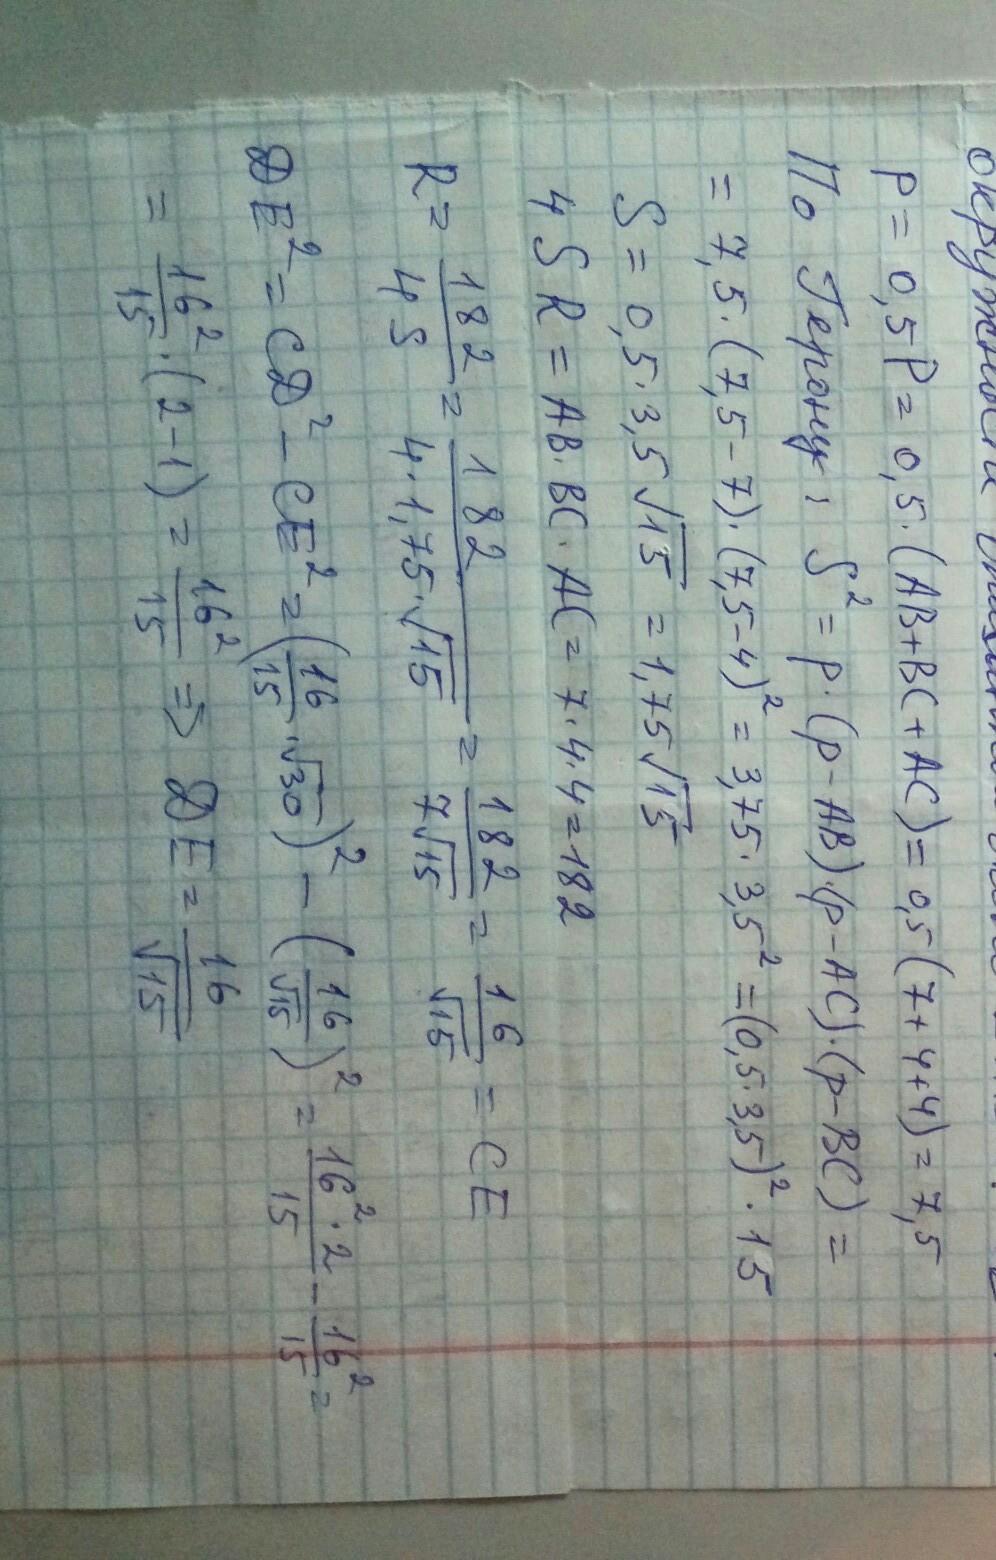 окружности
p = 0,5P = 0,5·(AB+BC+AC) = 0,5(7+4+4) = 7,5
По Герону: S² = p·(p-AB)·(p-AC)·(p-BC) =
= 7,5·(7,5-7)·(7,5-4)² = 3,75·3,5² = (0,5·3,5)²·15
S = 0,5·3,5√15 = 1,75√15
4SR = AB·BC·AC = 7·4·4 = 182
R = 182/4S = 182/4·1,75·√15 = 182/7√15 = 16/√15 = CE
DE² = CD² - CE² = (16/15·√30)² - (16/√15)² = 16²·2/15 - 16²/15 =
= 16²/15·(2-1) = 16²/15 => DE = 16/√15